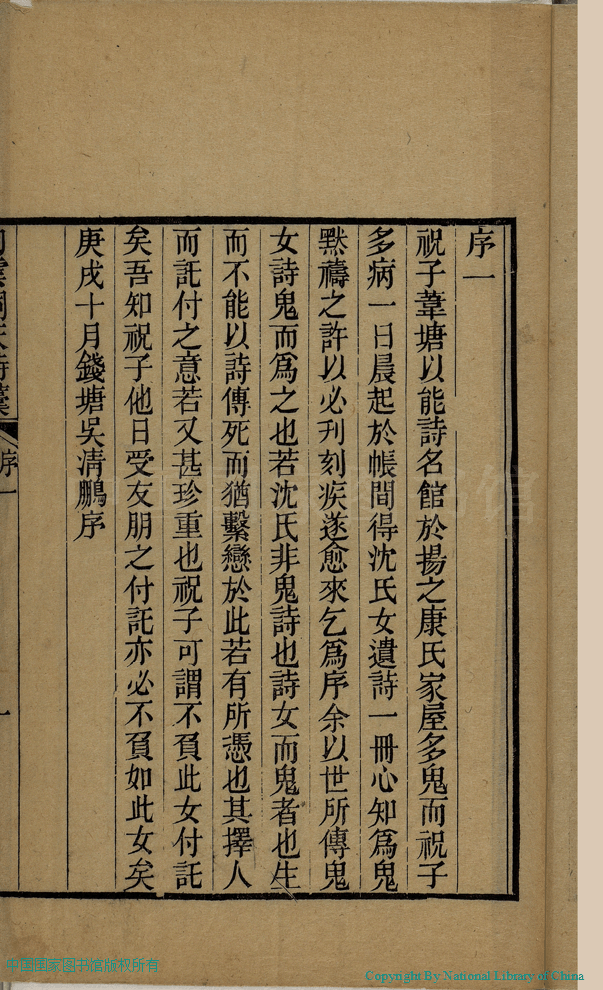 序一
祝子葦塘以能詩名館於揚之康氏家屋多鬼而祝子
多病一日晨起於帳間得沈氏女遺詩一冊心知爲鬼
黙禱之許以必刊刻疾遂愈來乞爲序余以世所傳鬼
女詩鬼而爲之也若沈氏非鬼詩也詩女而鬼者也生
而不能以詩傳死而猶繫戀於此若有所憑也其擇人
而託付之意若又甚珍重也祝子可謂不負此女付託
矣吾知祝子他日受友朋之付託亦必不負如此女矣
庚戌十月錢塘吳清鵬序
序一
一
中国国家图书馆版权所有
Copyright By National Library of China